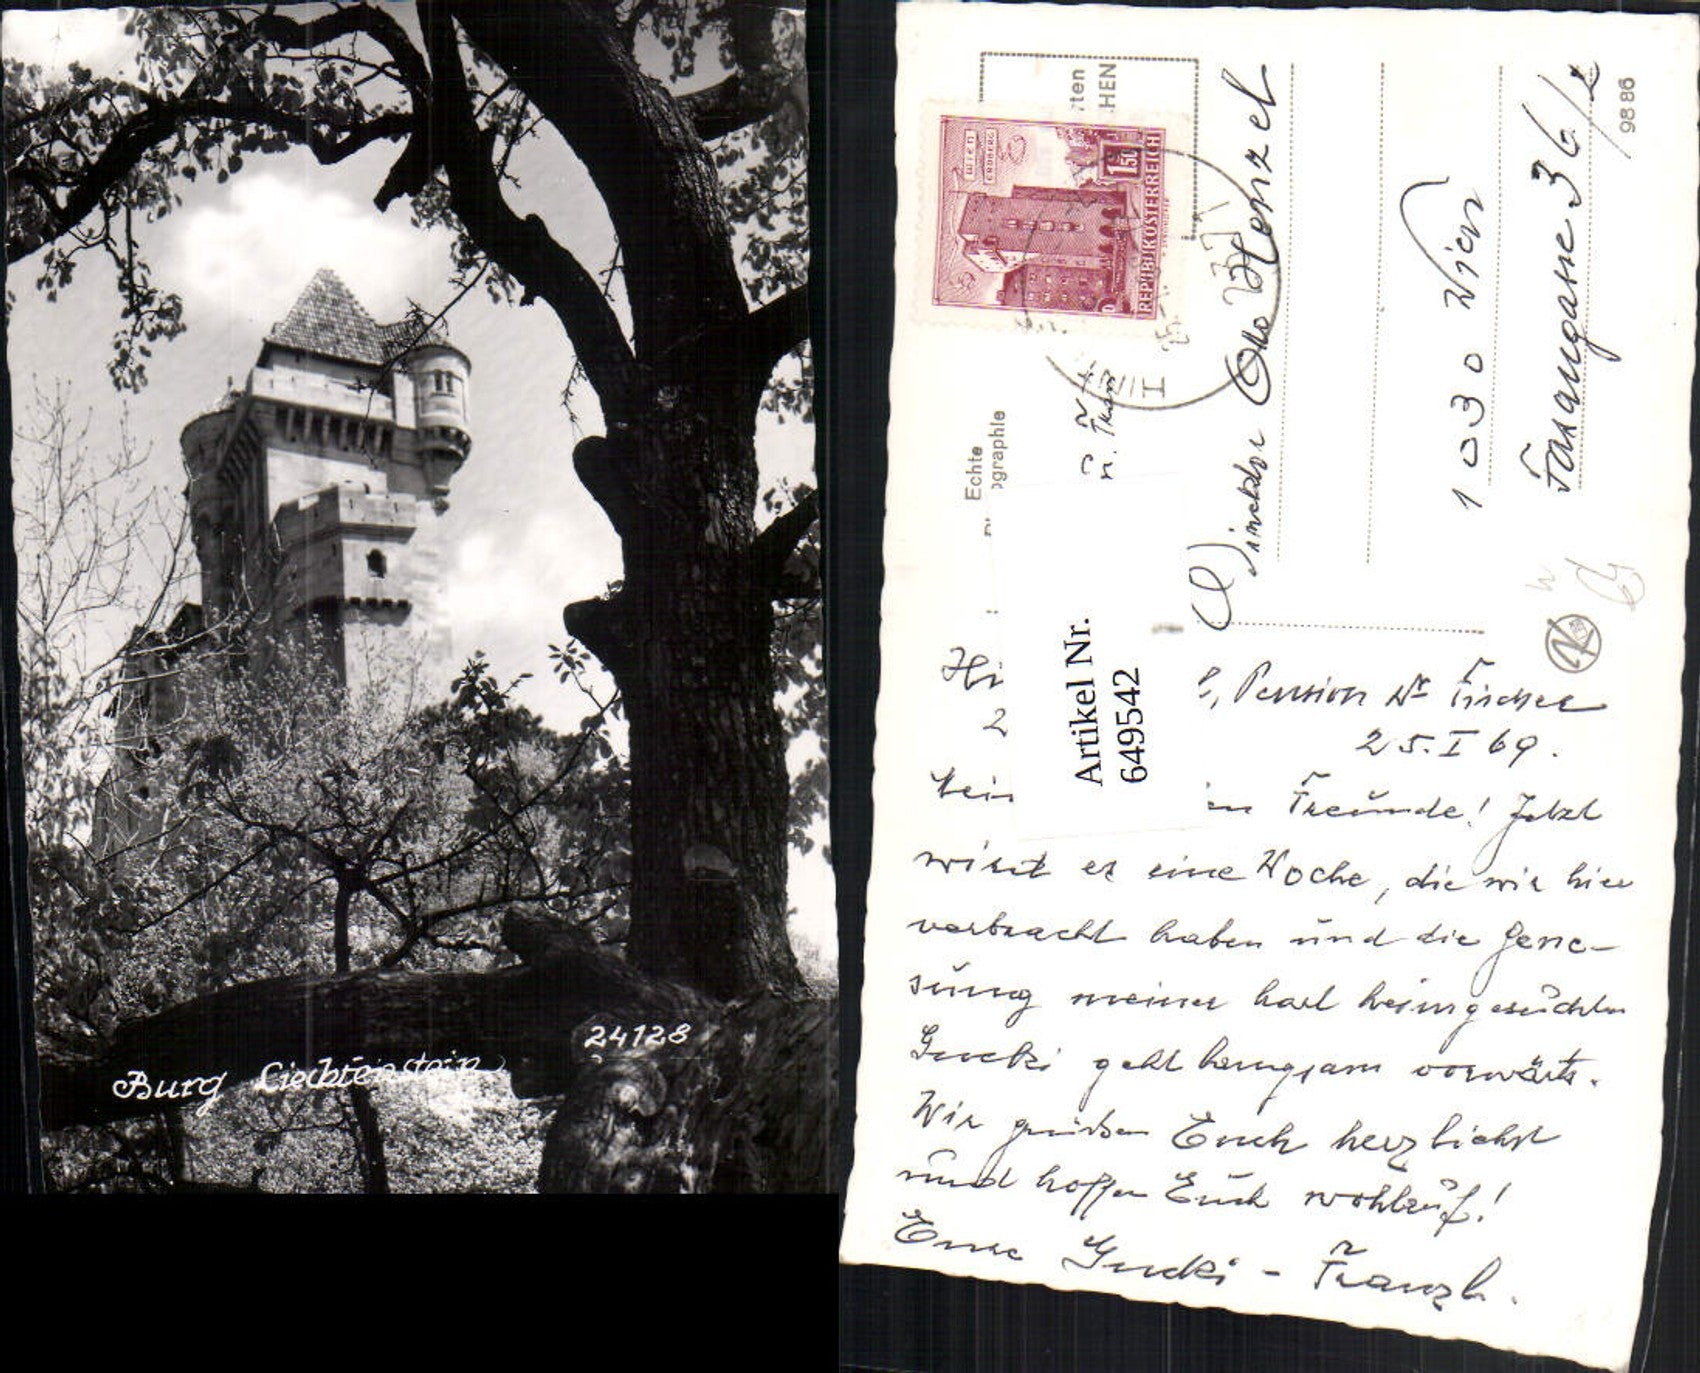 24128
Burg Liechtenstein
WIEN
ERDBERG
1.50
REPUBLIK ÖSTERREICH
Echte
Artikel Nr.
649542
Direktor Otto
1030 Wien
Fasangasse 36/2
9886
Pension Dr Fischer
25.I 69.
Freunde! Jetzt
wird es eine Woche, die wir hier
verbracht haben und die Gene-
sung meiner hart heimgesuchten
Gucki geht langsam vorwärts.
Wir grüßen Euch herzlichst
und hoffen Euch wohlauf!
Eure Gucki - Franzl.